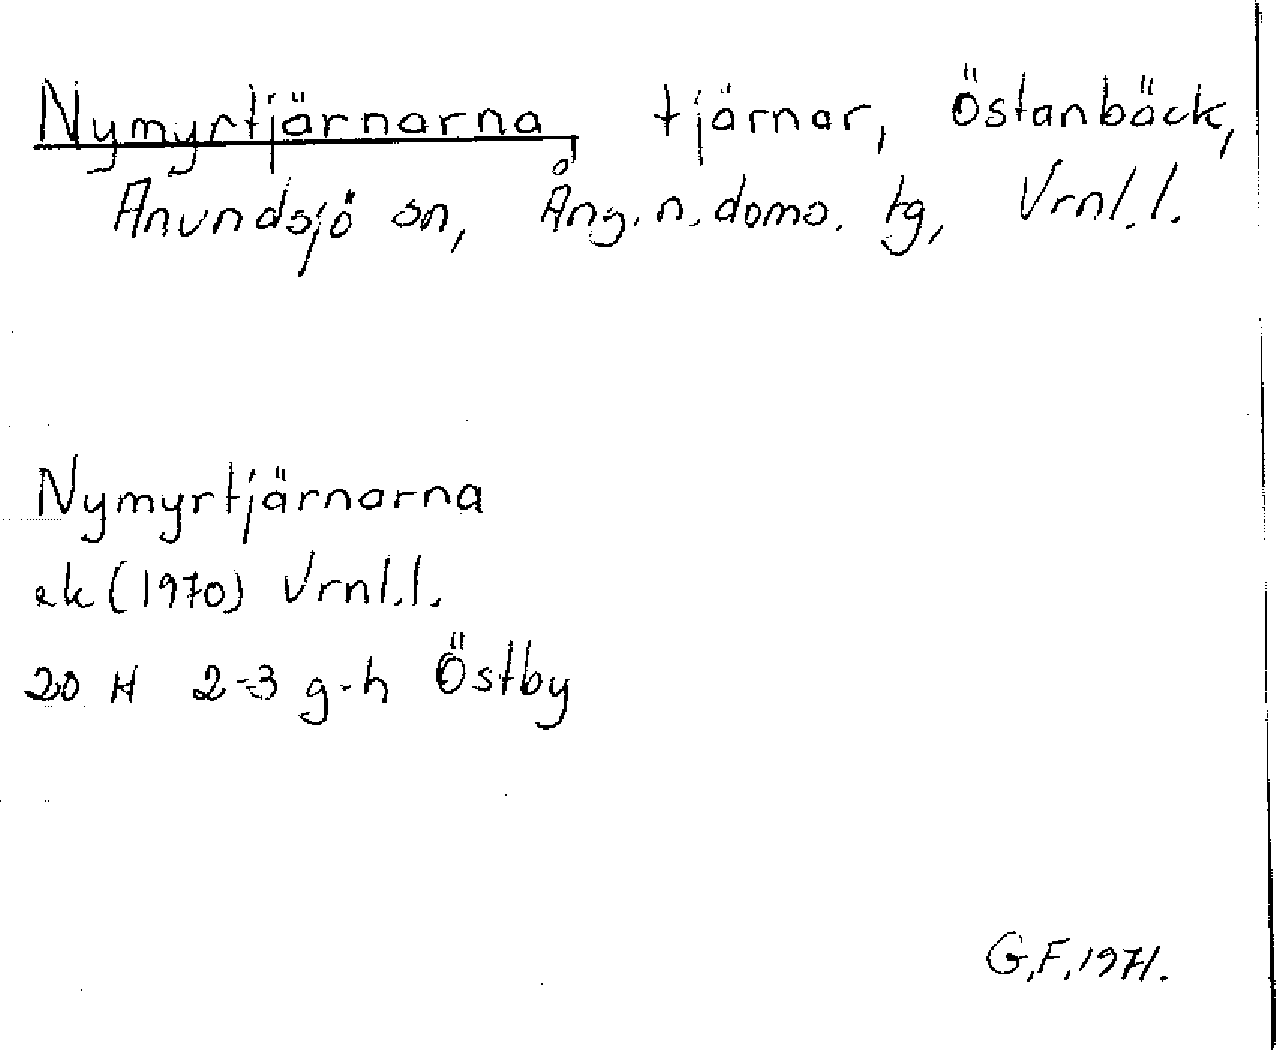 Nymyrtjärnarna, tjärnar, Östanbäck,
Anundsjö sn, Ång. n. doms. tg, Vrnl. l.
Nymyrtjärnarna
ek (1970) Vrnl. l.
20 H 2-3 g-h Östby
G.F. 1971.